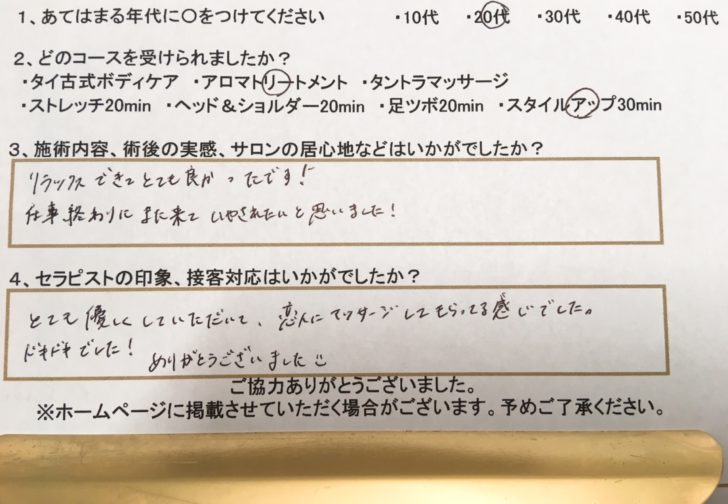 1、あてはまる年代に〇をつけてください ・10代 ・20代 ・30代 ・40代 ・50代
2、どのコースを受けられましたか？
・タイ古式ボディケア ・アロマトリートメント ・タントラマッサージ
・ストレッチ20min ・ヘッド＆ショルダー20min ・足ツボ20min ・スタイルアップ30min
3、施術内容、術後の実感、サロンの居心地などはいかがでしたか？
リラックスできてとても良かったです!
仕事終わりにまた来ていやされたいと思いました!
4、セラピストの印象、接客対応はいかがでしたか？
とても優しくしていただいて、恋人にマッサージしてもらってる感じでした。
ドキドキでした! ありがとうございました
ご協力ありがとうございました。
※ホームページに掲載させていただく場合がございます。予めご了承ください。